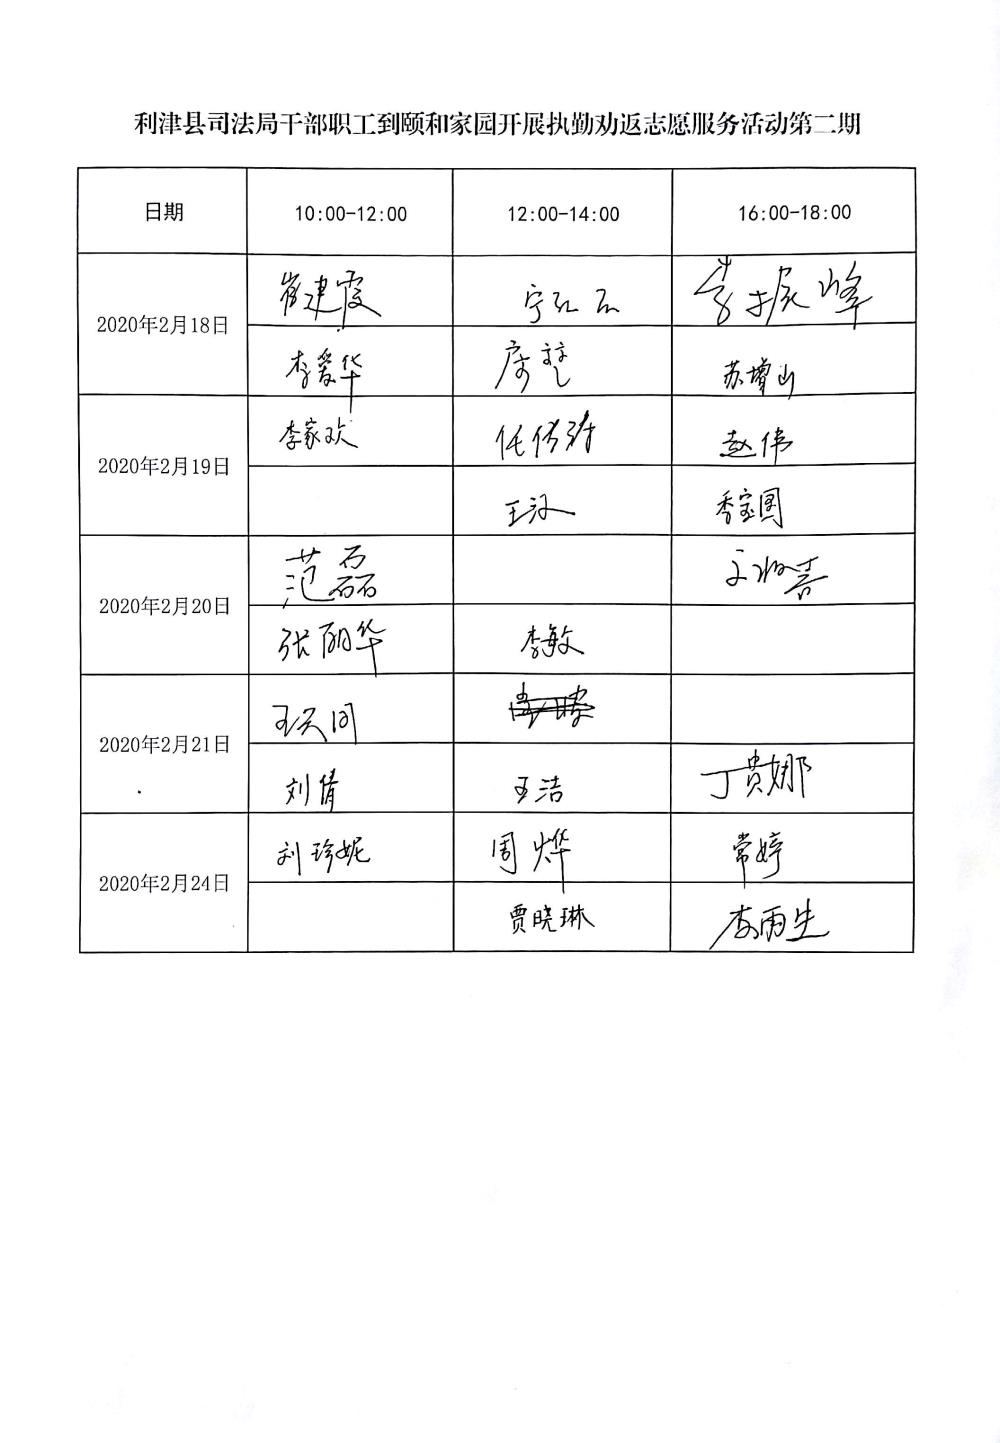 利津县司法局干部职工到颐和家园开展执勤劝返志愿服务活动第二期
日期 10:00-12:00 12:00-14:00 16:00-18:00
2020年2月18日
崔建霞 李振峰
李爱华 苏增山
2020年2月19日
李家欢 赵伟
王汉 香宝国
2020年2月20日
范磊
张丽华 李敏
2020年2月21日
王天同
刘倩 王洁 丁贵娜
2020年2月24日
刘珍妮 周烨 常婷
贾晓琳 李雨生